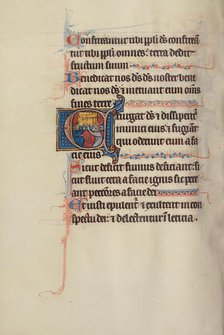 Confiteantur tibi pp̄li ds̄ confitean
tur tibi pp̄li omnes: terra dedit
fructum suum
Benedicat nos ds̄ ds̄ noster bene
dicat nos ds̄ & metuant eum om̄s
fines terre
Exurgat ds̄ & dissipent̄
inimici eius & fugiant
qui oderunt eum a fa
cie eius
Sicut deficit fumus deficiant: si
cut fluit cera a facie ignis sic pere
ant pctōres a facie dei
Et iusti epulent̄ & exultent in con
spectu dei: & delectentur ī leticia